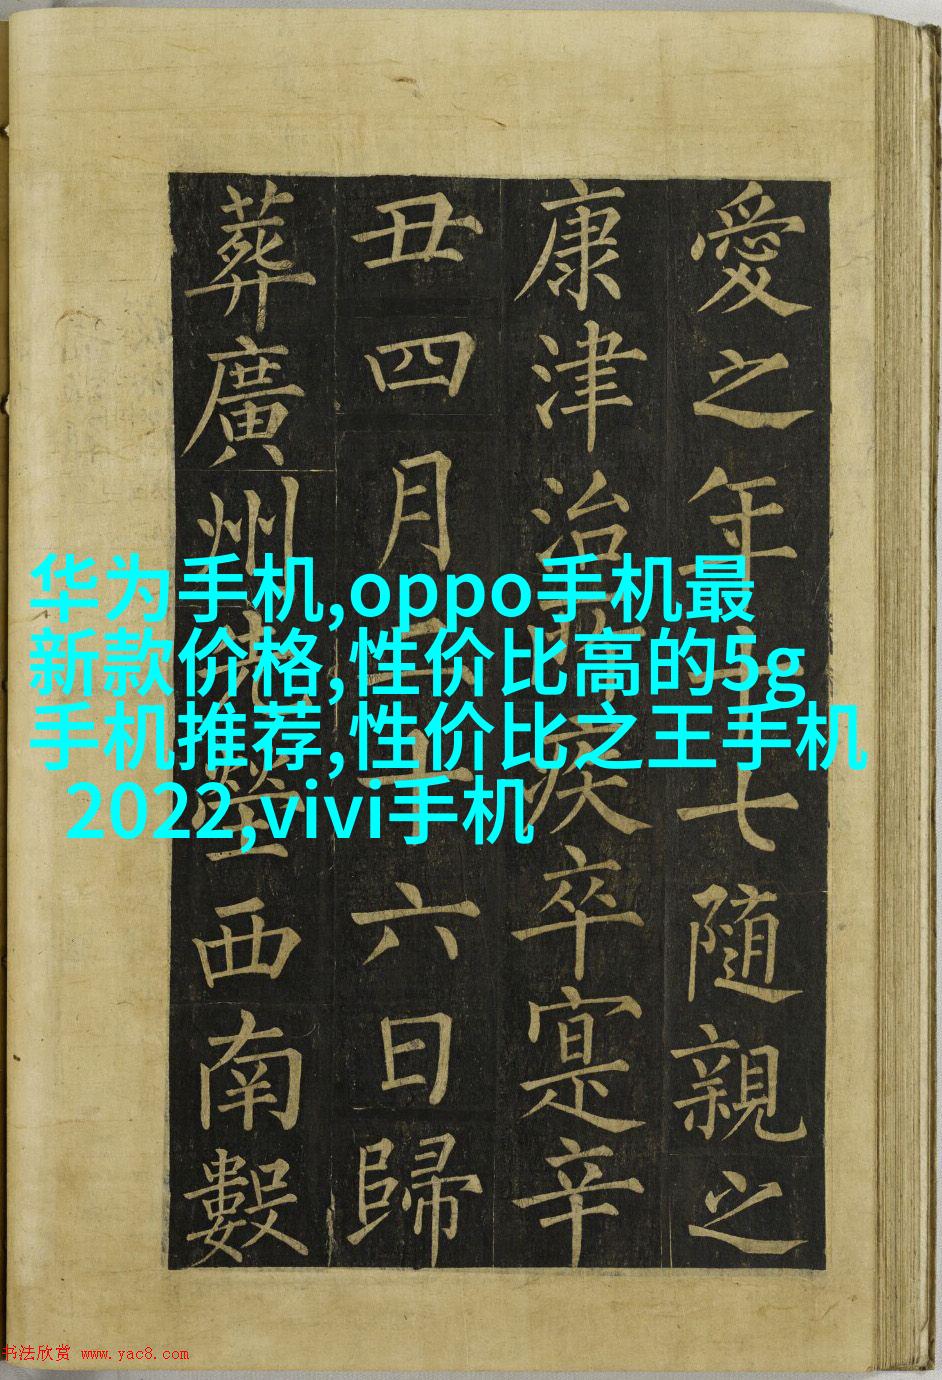 愛之年十七隨親之
康津治疾卒寔辛
丑四月二十六日歸
葬廣州先塋西南數
华为手机,oppo手机最
新款价格,性价比高的5g
手机推荐,性价比之王手机
2022,vivi手机
书法欣赏 www.yac8.com